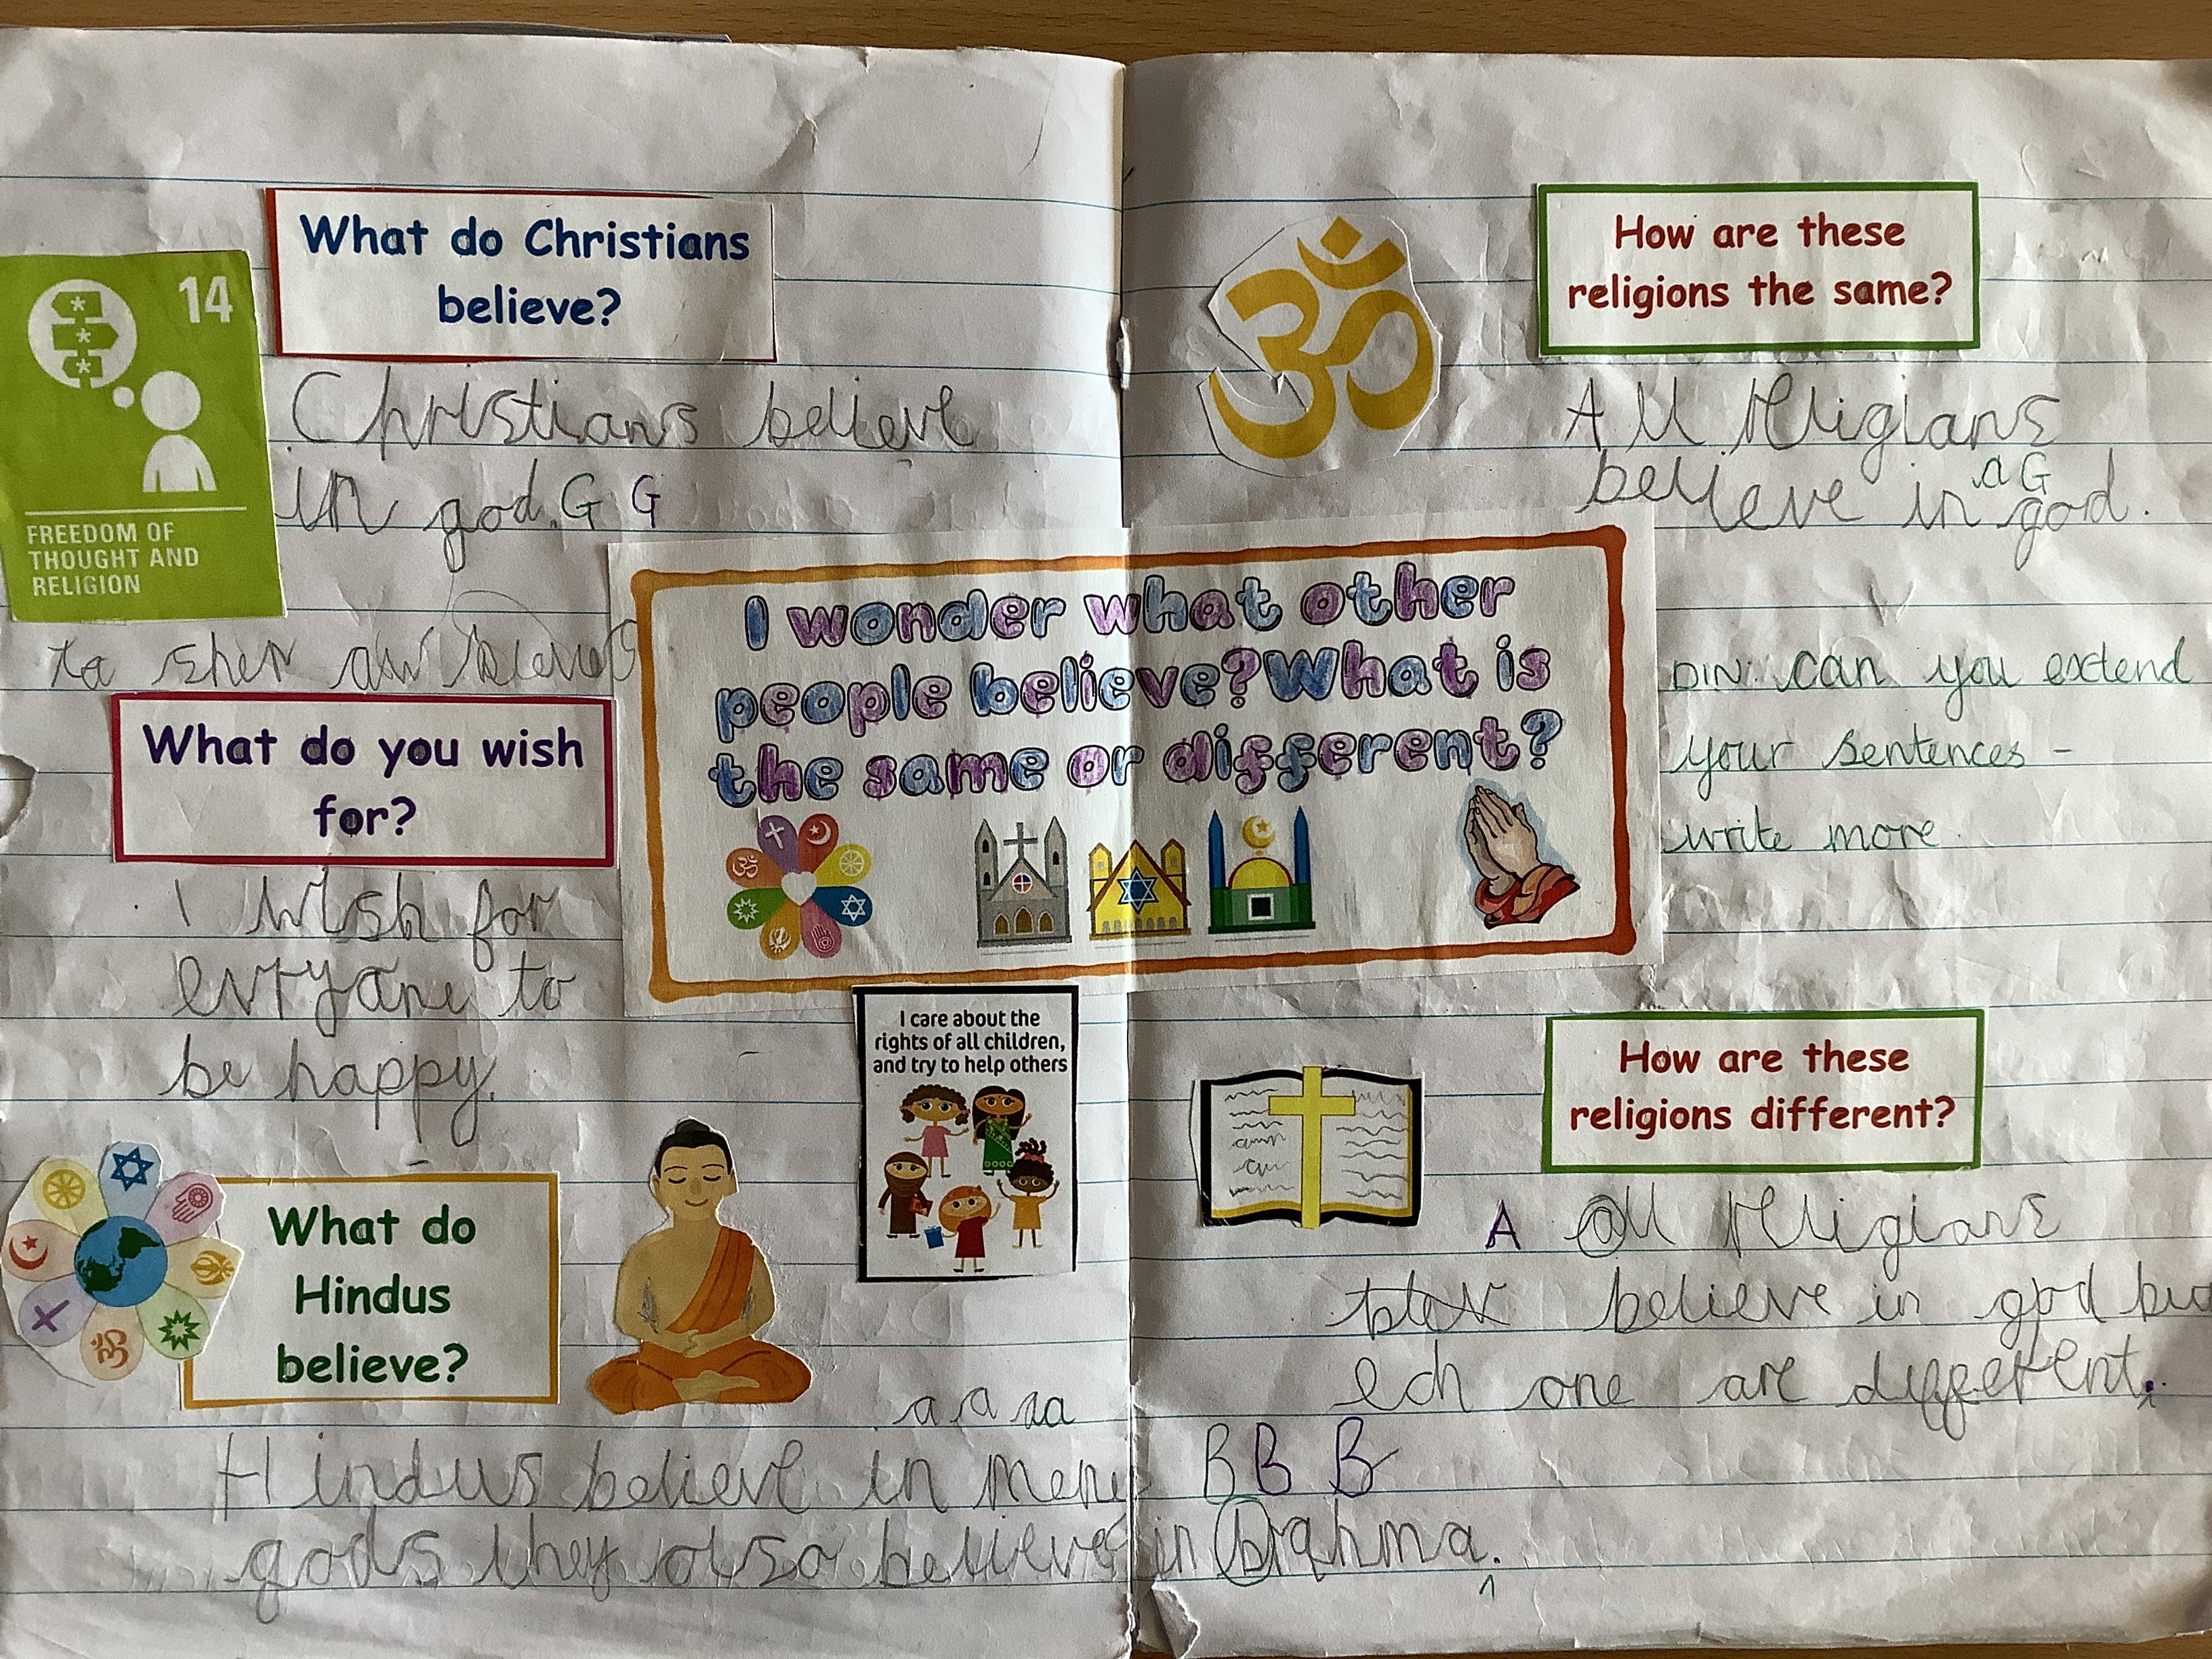 What do Christians
believe?
14
FREEDOM OF
THOUGHT AND
RELIGION
Christians believe
in god. G G
to
What do you wish
for?
I wish for
evryone to
be happy.
I wonder what other
people believe? What is
the same or different?
I care about the
rights of all children,
and try to help others
What do
Hindus
believe?
a a aa
Hindus believe in meny B B B
gods they also believe in brahma.
How are these
religions the same?
All religians
a G
believe in god.
DIN: can you extend
your sentences -
write more
How are these
religions different?
A all religians
believe in god but
ech one are different.